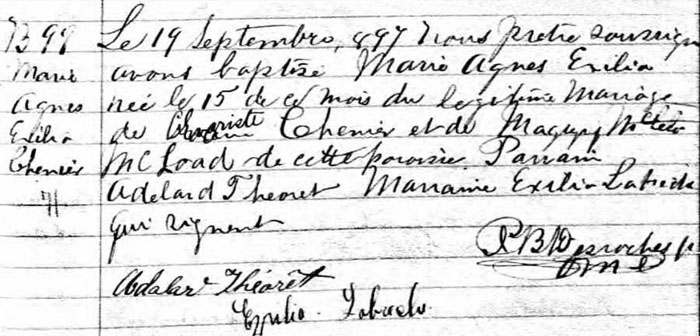 B 98
Marie
Agnes
Exilia
Chenier
Le 19 Septembre, 897 nous pretre soussign
avons baptisé Marie Agnes Exilia
née le 15 de ce mois du legitime Mariage
de Chenier et de Maggy
Mc Load de cette paroisse Parrain
Adelard Theoret Marraine Exilia Labade
qui signent
P B Desroches p.
Adelar Théorêt
Ezylia Labade